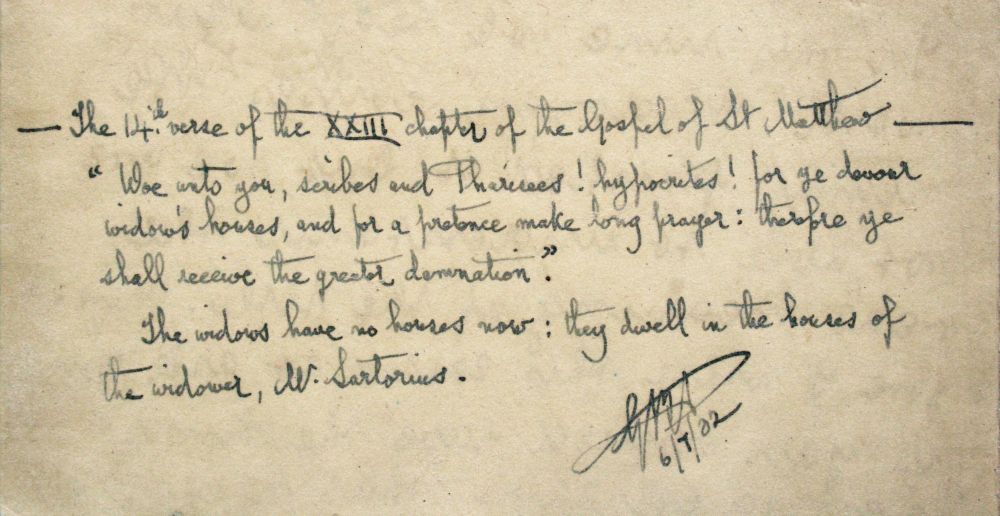 — The 14.th verse of the XXIII chapter of the Gospel of St Matthew —
" Woe unto you, scribes and Pharisees ! hypocrites ! for ye devour
widow's houses, and for a pretence make long prayer : therefore ye
shall receive the greater damnation ".
The widows have no houses now : they dwell in the houses of
the widower, Mr. Sartorius.